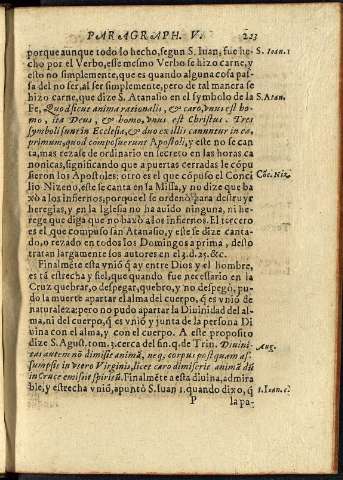 PARAGRAPH. V. 223
porque aunque todo lo hecho, segun S. Iuan, fue he- S. Ioan. 1
cho por el Verbo, esse mesmo Verbo se hizo carne, y
esto no simplemente, que es quando alguna cosa pas-
sa del no ser, al ser simplemente, pero de tal manera se
hizo carne, que dize S. Atanasio en el symbolo de la S. Atan.
Fe, Quod sicut anima rationalis, & caro, vnus est ho-
mo, ita Deus, & homo, vnus est Christus. Tres
symboli sunt in Ecclesia, & duo ex illis canuntur in ea,
primum, quod composuerunt Apostoli, y este no se can
ta, mas rezase de ordinario en secreto en las horas ca
nonicas, significando que a puertas cerradas le cõpu
sieron los Apostoles: otro es el que cõpuso el Conci
lio Nizeno, este se canta en la Missa, y no dize que ba Cõc. Niz.
xò a los infiernos, porque el se ordenò para destruyr
heregias, y en la Iglesia no ha auido ninguna, ni he-
rege que diga que no baxò a los infiernos. El tercero
es el que compuso san Atanasio, y este se dize canta-
do, o rezado en todos los Domingos a prima, desto
tratan largamente los autores en el 3. d. 25. &c.
Finalmẽte esta vniõ q̃ ay entre Dios y el hombre,
es tã estrecha y fiel, que quando fue necessario en la
Cruz quebrar, o despegar, quebro, y no despegò, pu-
do la muerte apartar el alma del cuerpo, q̃ es vniõ de
naturaleza: pero no pudo apartar la Diuinidad del al-
ma, ni del cuerpo, q̃ es vniõ y junta de la persona Di
uina con el alma, y con el cuerpo. A este proposito
dize S. Agust. tom. 3. cerca del fin. q. de Trin. Diuini-
tas autem nõ dimisit animã, neq, corpus postquam as- Aug.
sumpsit in vtero Virginis, licet caro dimiserit animã dũ
in Cruce emisit spiritũ. Finalmẽte a esta diuina, admira
ble, y estrecha vniõ, apuntò S. Iuan 1. quando dixo, q̃ 1. Ioan. c.
P la pa-